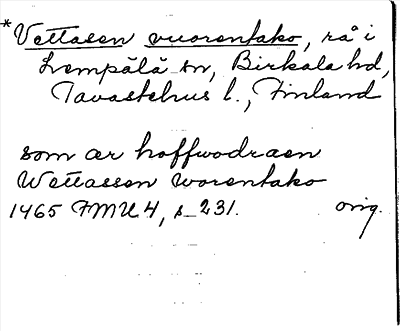 *Vettasen vuorentako, rå i
Lempälä sn, Birkala hd,
Tavastehus l., Finland
som ær hoffwodraen
Wettassen worentako
1465 FMU 4, s. 231. orig.